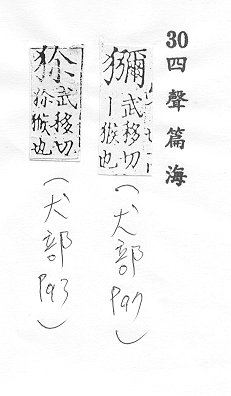 30四聲篇海
獼
武移切
丨猴也
(犬部 P97)
狝
武移切
狝猴也
(犬部 P93)